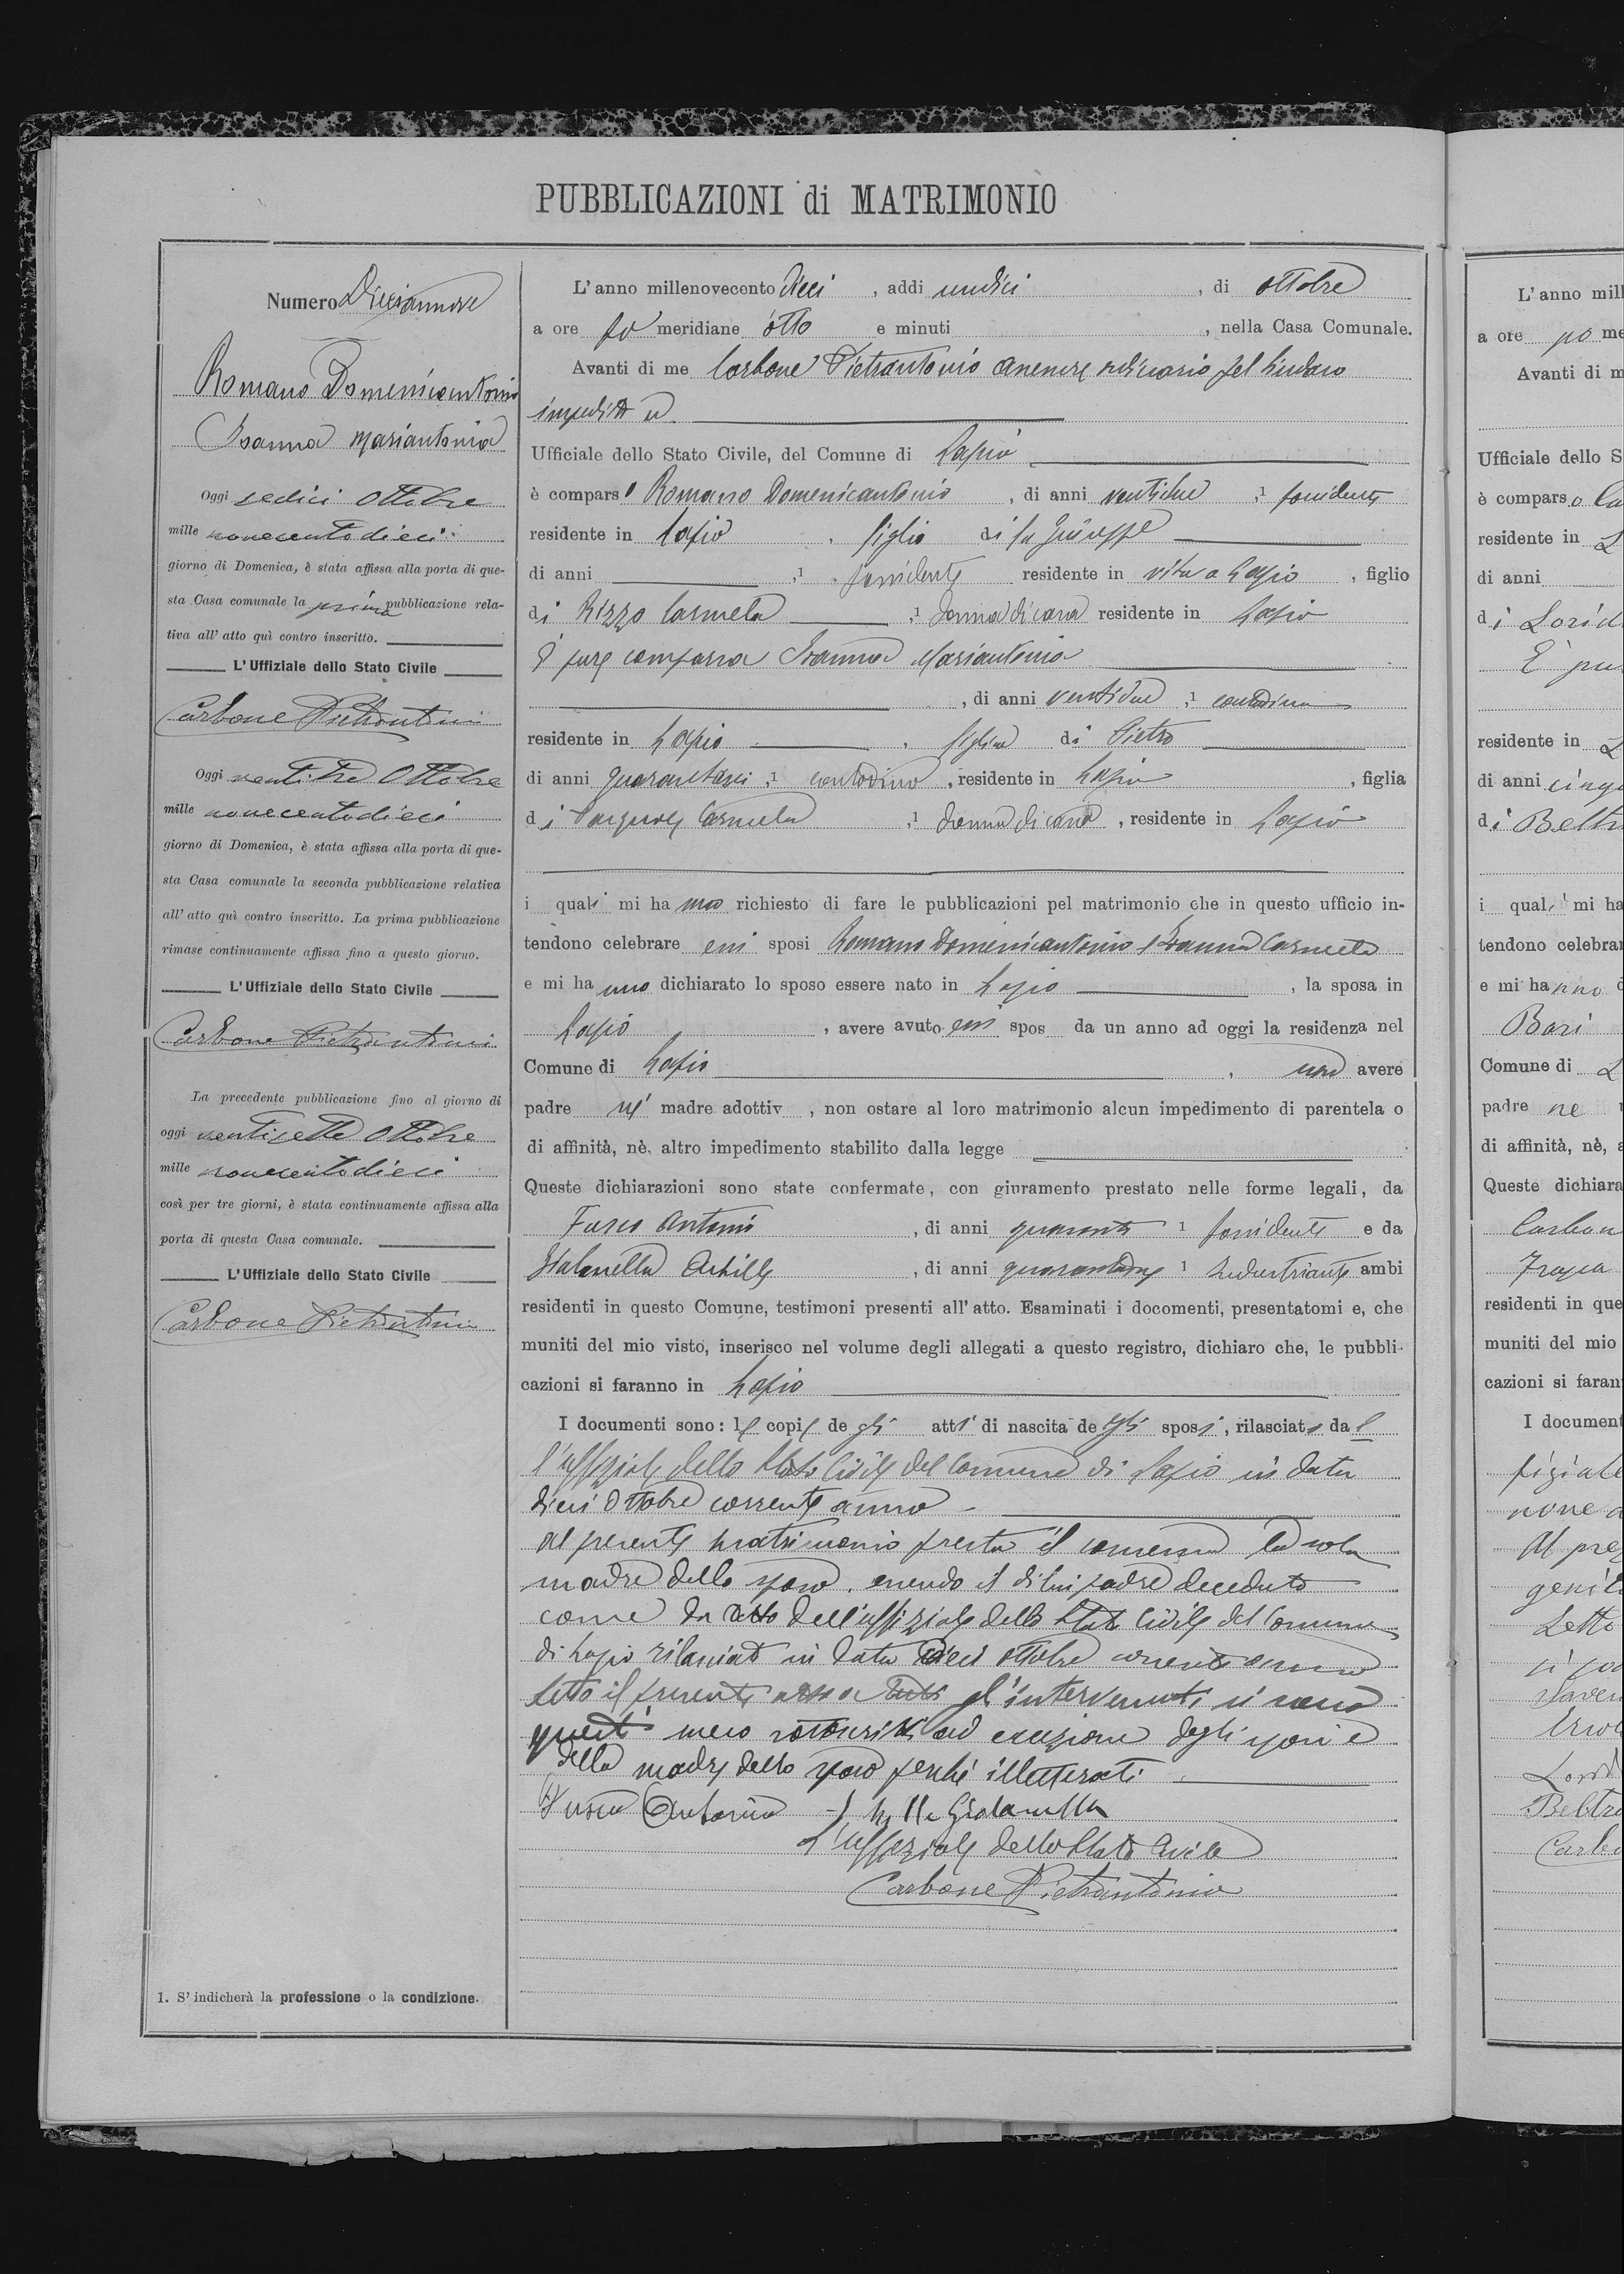 PUBBLICAZIONI di MATRIMONIO
Numero Diciannove
Romano Domenicantonio
Ioanna Mariantonia
Oggi sedici Ottobre
mille novecentodieci
giorno di Domenica, è stata affissa alla porta di que-
sta Casa comunale la prima pubblicazione rela-
tiva all' atto quì contro inscritto.
L' Uffiziale dello Stato Civile
Carbone Pietrantonio
Oggi ventitre Ottobre
mille novecentodieci
giorno di Domenica, è stata affissa alla porta di que-
sta Casa comunale la seconda pubblicazione relativa
all' atto quì contro inscritto. La prima pubblicazione
rimase continuamente affissa fino a questo giorno.
L' Uffiziale dello Stato Civile
Carbone Pietrantonio
La precedente pubblicazione fino al giorno di
oggi ventisette Ottobre
mille novecentodieci
così per tre giorni, è stata continuamente affissa alla
porta di questa Casa comunale.
L' Uffiziale dello Stato Civile
Carbone Pietrantonio
1. S' indicherà la professione o la condizione.
L' anno millenovecento dieci , addi undici , di ottobre
a ore po meridiane otto e minuti , nella Casa Comunale.
Avanti di me Carbone Pietrantonio assessore ordinario pel Sindaco
impedito
Ufficiale dello Stato Civile, del Comune di Lapio
è compars o Romano Domenicantonio , di anni ventidue ,1 possidente
residente in Lapio , figlio di fu Giuseppe
di anni ,1 possidente residente in vita a Lapio , figlio
di Rizzo Carmela ,1 donna di casa residente in Lapio
È pure comparsa Ioanna Mariantonia
, di anni ventidue ,1 contadina
residente in Lapio , figlia di Pietro
di anni quarantasei ,1 contadino , residente in Lapio , figlia
di Carmela ,1 donna di casa , residente in Lapio
i quali mi ha nno richiesto di fare le pubblicazioni pel matrimonio che in questo ufficio in-
tendono celebrare essi sposi Romano Domenicantonio e Ioanna Carmela
e mi ha nno dichiarato lo sposo essere nato in Lapio , la sposa in
Lapio , avere avuto essi spos da un anno ad oggi la residenza nel
Comune di Lapio , non avere
padre nè madre adottiv , non ostare al loro matrimonio alcun impedimento di parentela o
di affinità, nè, altro impedimento stabilito dalla legge
Queste dichiarazioni sono state confermate, con giuramento prestato nelle forme legali, da
Fusco Antonio , di anni quaranta 1 possidente e da
Achille , di anni quarantadue 1 industriante ambi
residenti in questo Comune, testimoni presenti all' atto. Esaminati i docomenti, presentatomi e, che
muniti del mio visto, inserisco nel volume degli allegati a questo registro, dichiaro che, le pubbli-
cazioni si faranno in Lapio
I documenti sono: le copie de gli atti di nascita de gli sposi, rilasciate dal
l'uffiziale dello Stato Civile del Comune di Lapio in data
dieci Ottobre corrente anno
Al presente matrimonio presta il consenso la sola
madre dello sposo, essendo il di lui padre deceduto
come da atto dell'uffiziale dello Stato Civile del Comune
di Lapio rilasciato in data dieci ottobre corrente anno
Letto il presente atto a tutti gl'intervenuti si sono
questi meco sottoscritti ad eccezione degli sposi e
della madre dello sposo perché illetterati
Fusco Antonio
L'uffiziale dello Stato Civile
Carbone Pietrantonio
L' anno mill
a ore po me
Avanti di m
Ufficiale dello S
è compars o Ca
residente in L
di anni
di Lorid
È pu
residente in L
di anni cinqu
di Beltr
i qual i mi ha
tendono celebrar
e mi ha nno d
Bari
Comune di L
padre ne
di affinità, nè, a
Queste dichiara
Carbon
residenti in que
muniti del mio
cazioni si faran
I document
Al pre
genit
Letto
Beltra
Carbo